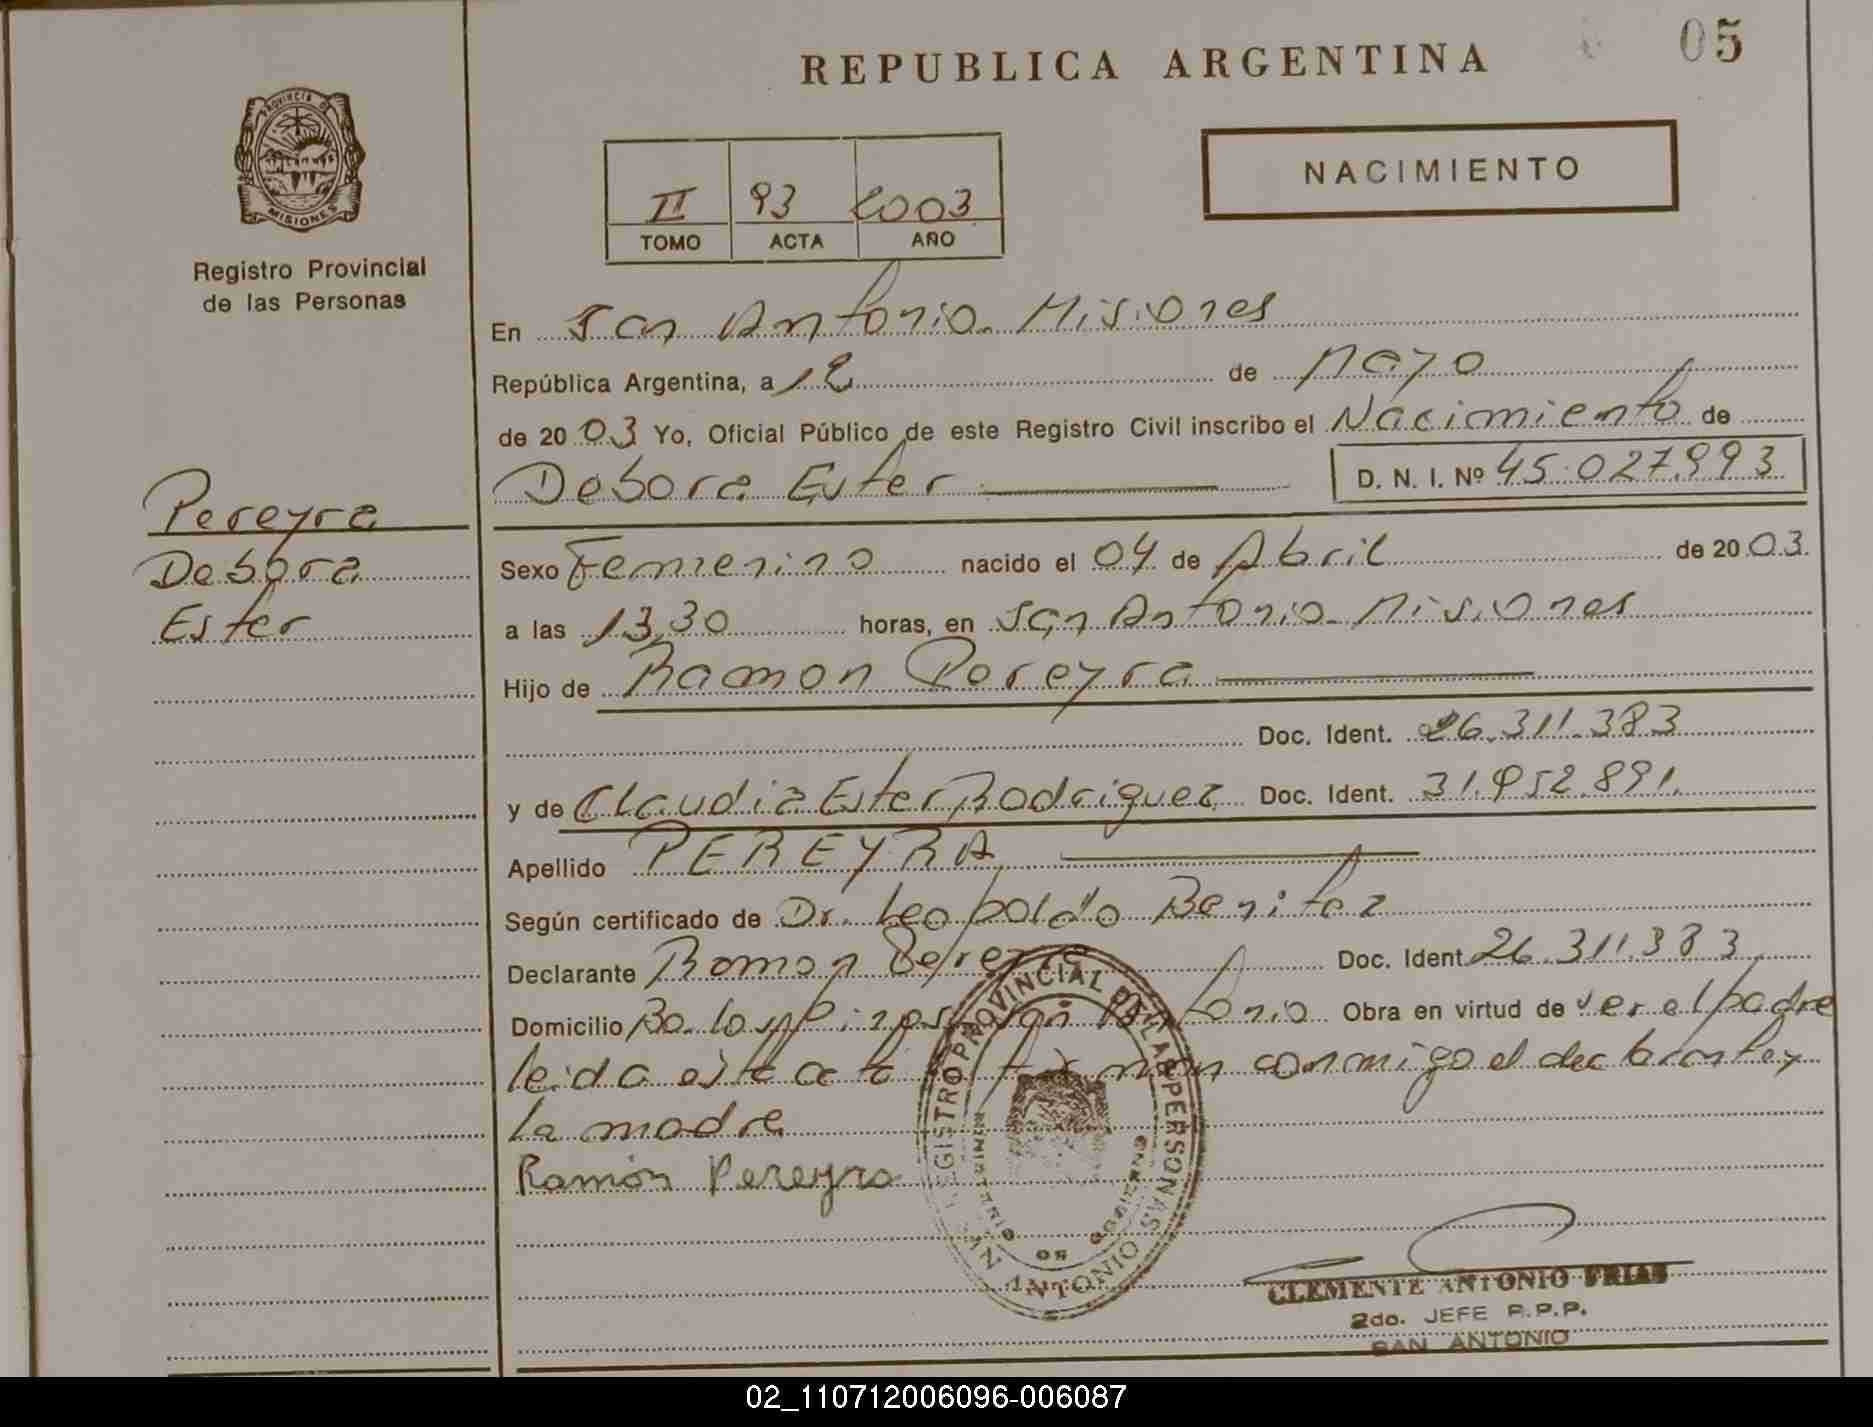 REPUBLICA ARGENTINA
05
PROVINCIA DE
MISIONES
Registro Provincial
de las Personas
II 93 2003
TOMO ACTA AÑO
NACIMIENTO
En San Antonio Misiones
República Argentina, a 12 de Mayo
de 2003 Yo, Oficial Público de este Registro Civil inscribo el Nacimiento de
Debora Ester
D. N. I. Nº 45.027.993
Pereyra
Debora
Ester
Sexo Femenino nacido el 04 de Abril de 2003.
a las 13,30 horas, en San Antonio Misiones
Hijo de Ramon Pereyra
Doc. Ident. 26.311.383
y de Claudia Ester Rodriguez Doc. Ident. 31.952.891.
Apellido PEREYRA
Según certificado de Dr. Leopoldo Benitez
Declarante Ramon Pereyra Doc. Ident. 26.311.383
Domicilio Bo. los Pinos San Antonio Obra en virtud de ser el padre
leida esta acta firman conmigo el declarante y
la madre
Ramón Pereyra
REGISTRO PROVINCIAL DE LAS PERSONAS
MINISTERIO DE GOBIERNO
SAN ANTONIO
CLEMENTE ANTONIO FRIAS
2do. JEFE R.P.P.
SAN ANTONIO
02_110712006096-006087